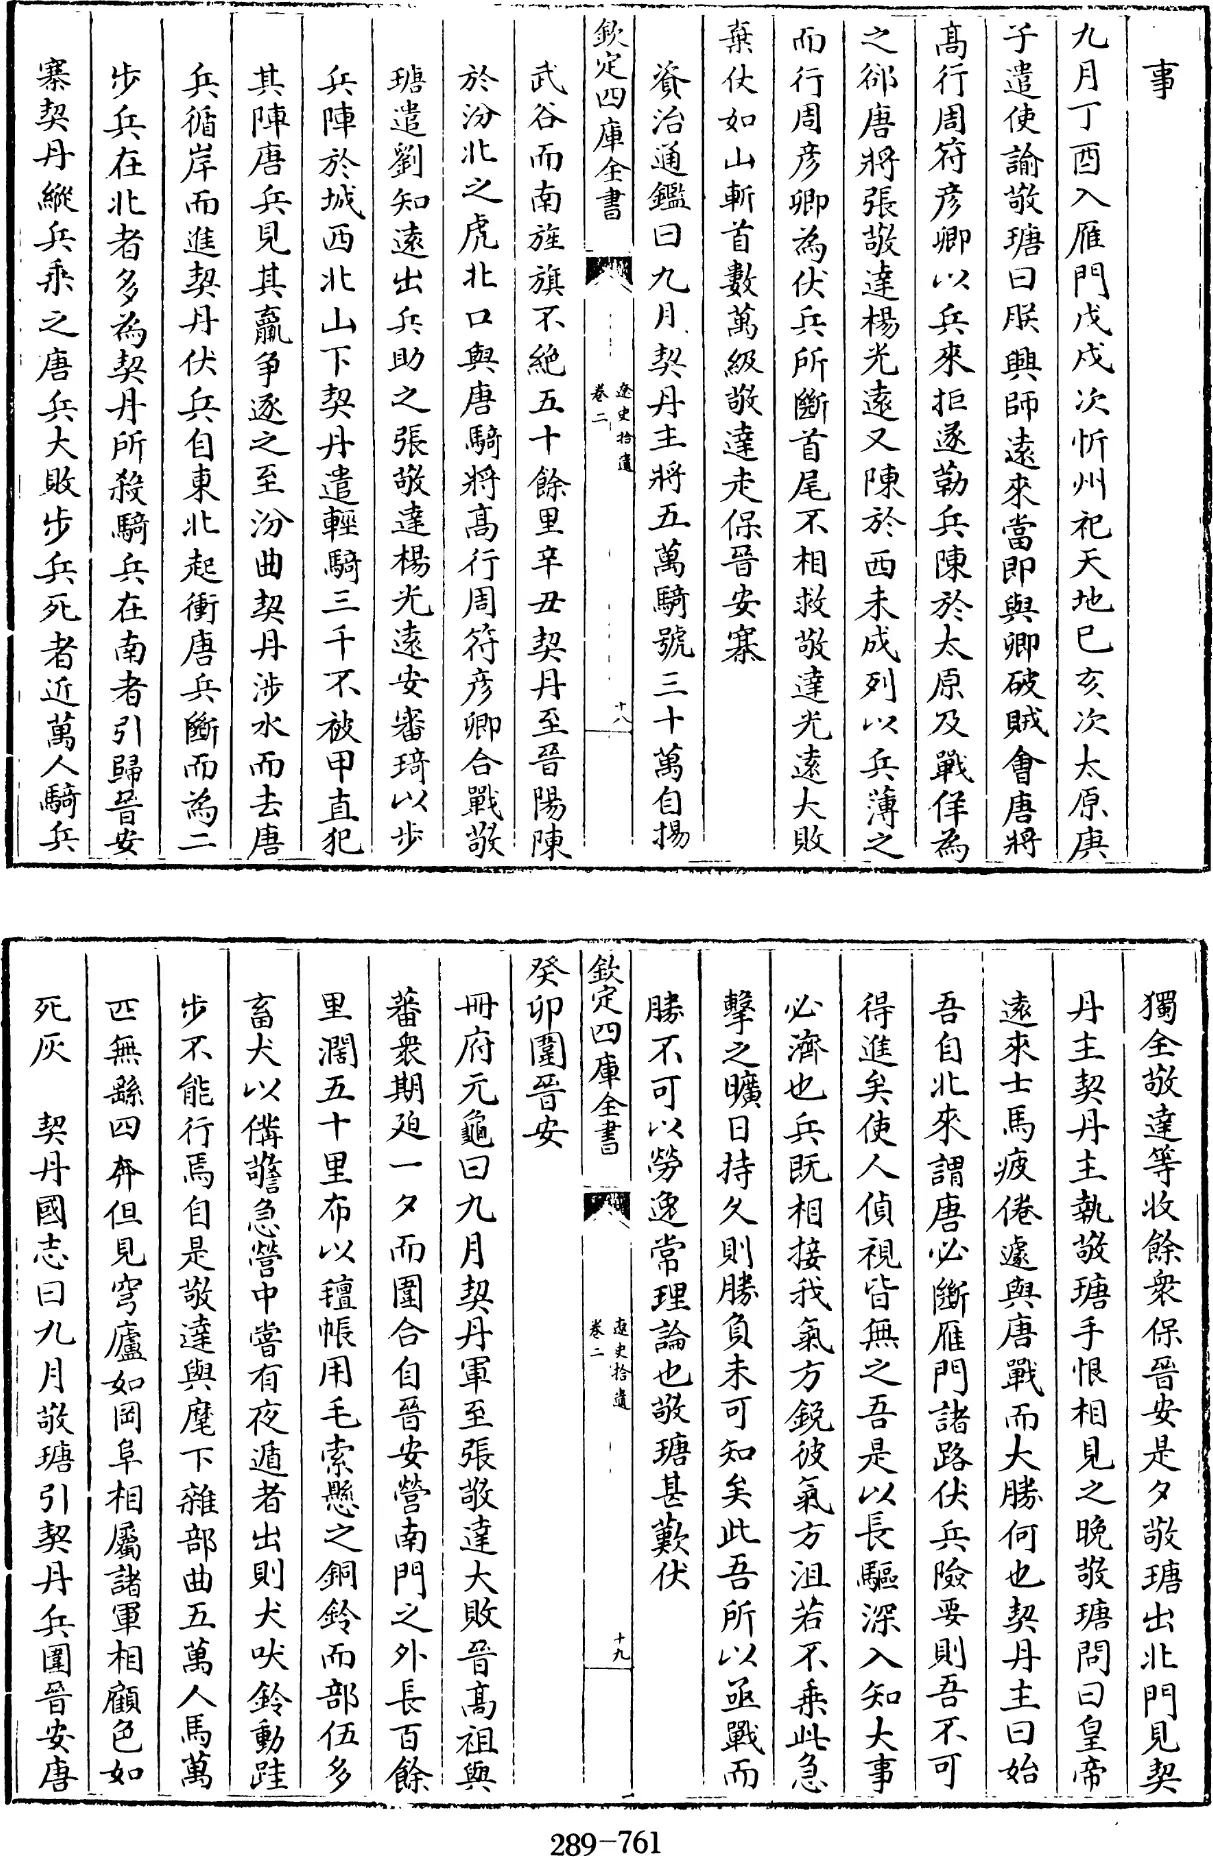 事
九月丁酉入雁門戊戌次忻州祀天地己亥次太原庚
子遣使諭敬瑭曰朕興師遠來當即與卿破賊會唐將
髙行周符彦卿以兵來拒遂勒兵陳於太原及戰佯為
之郤唐將張敬達楊光逺又陳於西未成列以兵薄之
而行周彦卿為伏兵所斷首尾不相救敬達光逺大敗
棄仗如山斬首數萬級敬達走保晉安寨
資治通鑑曰九月契丹主將五萬騎號三十萬自揚
欽定四庫全書
遼史拾遺
卷二
十八
武谷而南旌旗不絶五十餘里辛丑契丹至晉陽陳
於汾北之虎北口與唐騎將髙行周符彦卿合戰敬
瑭遣劉知逺出兵助之張敬達楊光逺安審琦以步
兵陣於城西北山下契丹遣輕騎三千不被甲直犯
其陣唐兵見其羸爭逐之至汾曲契丹涉水而去唐
兵循岸而進契丹伏兵自東北起衝唐兵斷而為二
步兵在北者多為契丹所殺騎兵在南者引歸晉安
寨契丹縱兵乘之唐兵大敗步兵死者近萬人騎兵
獨全敬達等收餘衆保晉安是夕敬瑭出北門見契
丹主契丹主執敬瑭手恨相見之晚敬瑭問曰皇帝
逺來士馬疲倦遽與唐戰而大勝何也契丹主曰始
吾自北來謂唐必斷雁門諸路伏兵險要則吾不可
得進矣使人偵視皆無之吾是以長驅深入知大事
必濟也兵既相接我氣方鋭彼氣方沮若不乘此急
擊之曠日持久則勝負未可知矣此吾所以亟戰而
勝不可以勞逸常理論也敬瑭甚歎伏
欽定四庫全書
遼史拾遺
卷二
十九
癸卯圍晉安
冊府元龜曰九月契丹軍至張敬達大敗晉髙祖與
蕃衆期廹一夕而圍合自晉安營南門之外長百餘
里濶五十里布以氊帳用毛索懸之銅鈴而部伍多
畜犬以備警急營中嘗有夜遁者出則犬吠鈴動跬
步不能行焉自是敬達與麾下雜部曲五萬人馬萬
匹無繇四奔但見穹廬如岡阜相屬諸軍相顧色如
死灰 契丹國志曰九月敬瑭引契丹兵圍晉安唐
289-761